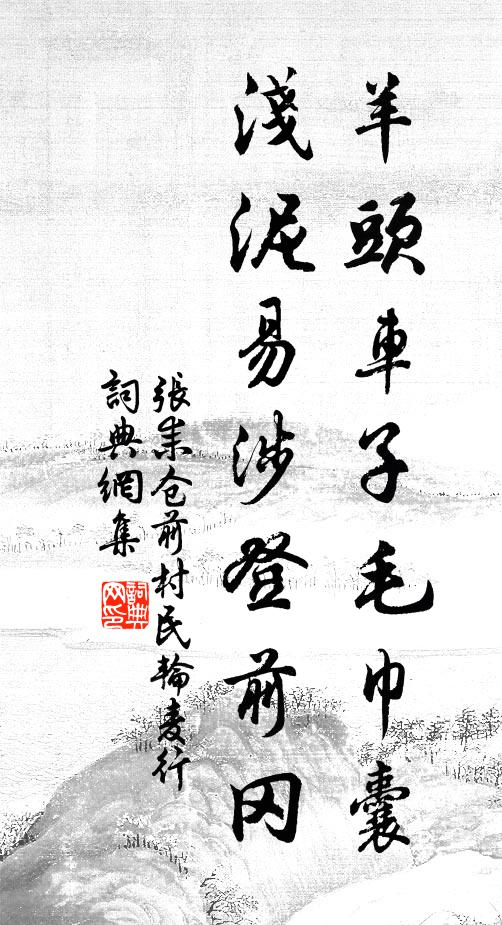 羊頭車子毛巾囊
淺泥易涉登前冈
張耒仓前村民輪麦行
詞典網集
詞典网印